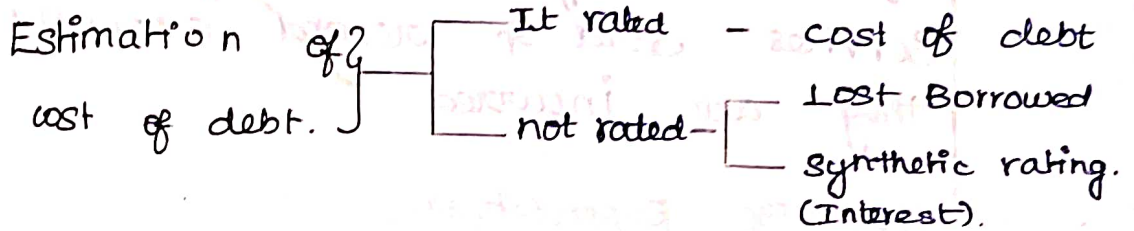 Estimation of
cost of debt.
It rated - cost of debt
not rated - Lost Borrowed
Synthetic rating.
(Interest).